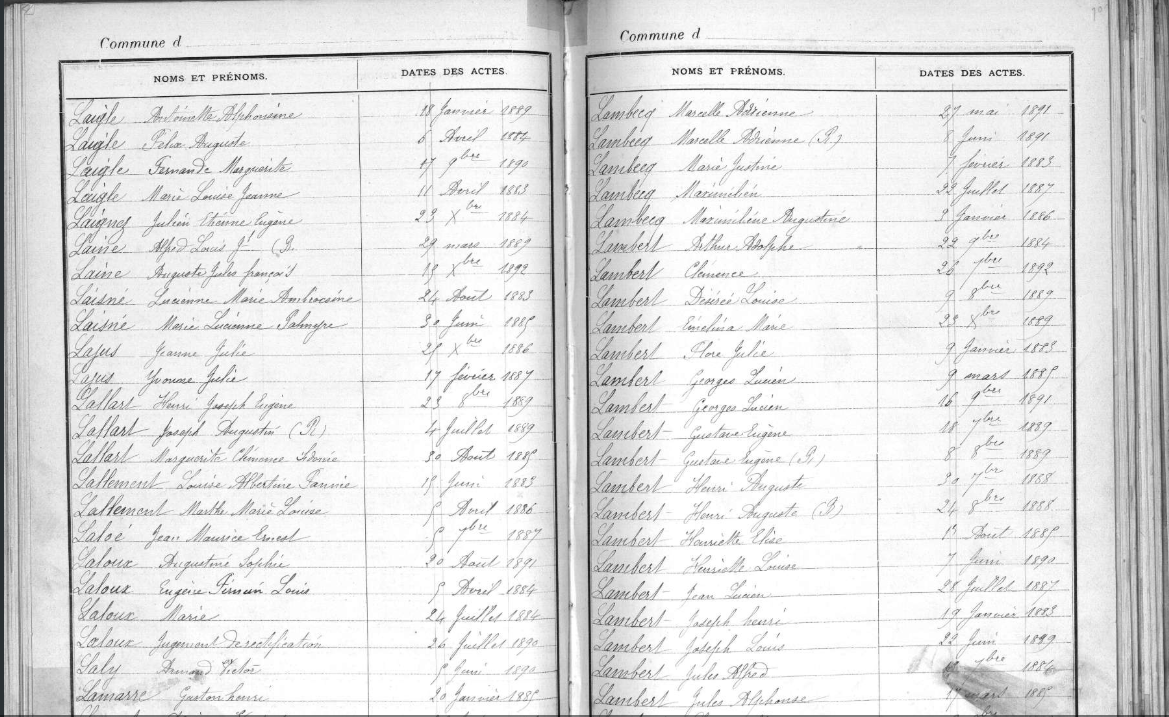 Commune d
NOMS ET PRÉNOMS. DATES DES ACTES.
Laigle Antoinette Alphonsine 18 Janvier 1889
Laigle Félix Auguste 6 Avril 1884
Laigle Fernande Marguerite 17 9bre 1890
Laigle Marie Louise Jeanne 11 Avril 1883
Laignez Julien Etienne Eugène 23 Xbre 1884
Lainé Alfred Louis Jh (R. 29 mars 1889
Lainé Auguste Jules françois 18 Xbre 1892
Laisné Lucienne Marie Ambroisine 24 Août 1883
Laisné Marie Lucienne Palmyre 30 Juin 1885
Lajus Jeanne Julie 25 Xbre 1886
Lajus Yvonne Julie 17 février 1887
Lallart Henri Joseph Eugène 23 8bre 1889
Lallart Joseph Augustin (R) 4 Juillet 1889
Lallart Marguerite Clémence Sidonie 30 Août 1885
Lallement Louise Albertine Fannie 15 Juin 1883
Lallement Marthe Marie Louise 5 Avril 1886
Laloé Jean Maurice Ernest 5 7bre 1887
Laloux Augustine Sophie 20 Août 1891
Laloux Eugène Firmin Louis 5 Avril 1884
Laloux Marie 24 Juillet 1884
Laloux Jugement de rectification 26 Juillet 1890
Laly Armand Victor 5 Juin 1890
Lamarre Gaston henri 20 Janvier 1885
Commune d
NOMS ET PRÉNOMS. DATES DES ACTES.
Lambecq Marcelle Adrienne 27 mai 1891
Lambecq Marcelle Adrienne (R.) 8 Juin 1891
Lambecq Marie Justine 7 février 1883
Lambecq Maximilien 22 Juillet 1887
Lambecq Maximilienne Augustine 3 Janvier 1886
Lambert Arthur Adolphe 22 9bre 1884
Lambert Clémence 26 7bre 1892
Lambert Désirée Louise 9 8bre 1889
Lambert Emélina Marie 23 Xbre 1889
Lambert Flore Julie 9 Janvier 1883
Lambert Georges Lucien 9 mars 1885
Lambert Georges Lucien 16 9bre 1891
Lambert Gustave Eugène 18 7bre 1889
Lambert Gustave Eugène (R.) 8 8bre 1889
Lambert Henri Auguste 30 7bre 1888
Lambert Henri Auguste (R) 24 8bre 1888
Lambert Henriette Elise 13 Août 1885
Lambert Henriette Louise 7 Juin 1890
Lambert Jean Lucien 28 Juillet 1887
Lambert Joseph henri 19 Janvier 1883
Lambert Joseph Louis 22 Juin 1889
Lambert Jules Alfred 7bre 1884
Lambert Jules Alphonse 17 mars 1885